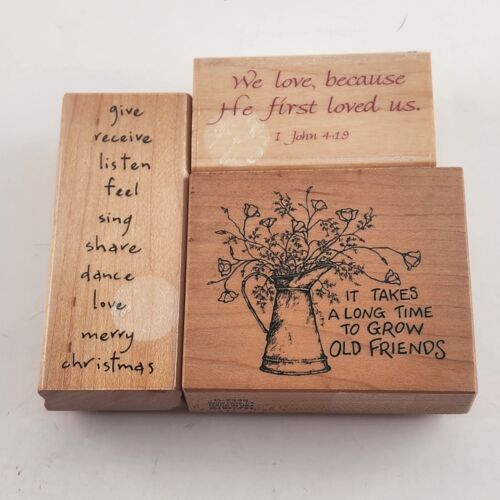 give
receive
listen
feel
sing
share
dance
love
merry
christmas
We love, because
He first loved us.
I John 4:19
IT TAKES
A LONG TIME
TO GROW
OLD FRIENDS